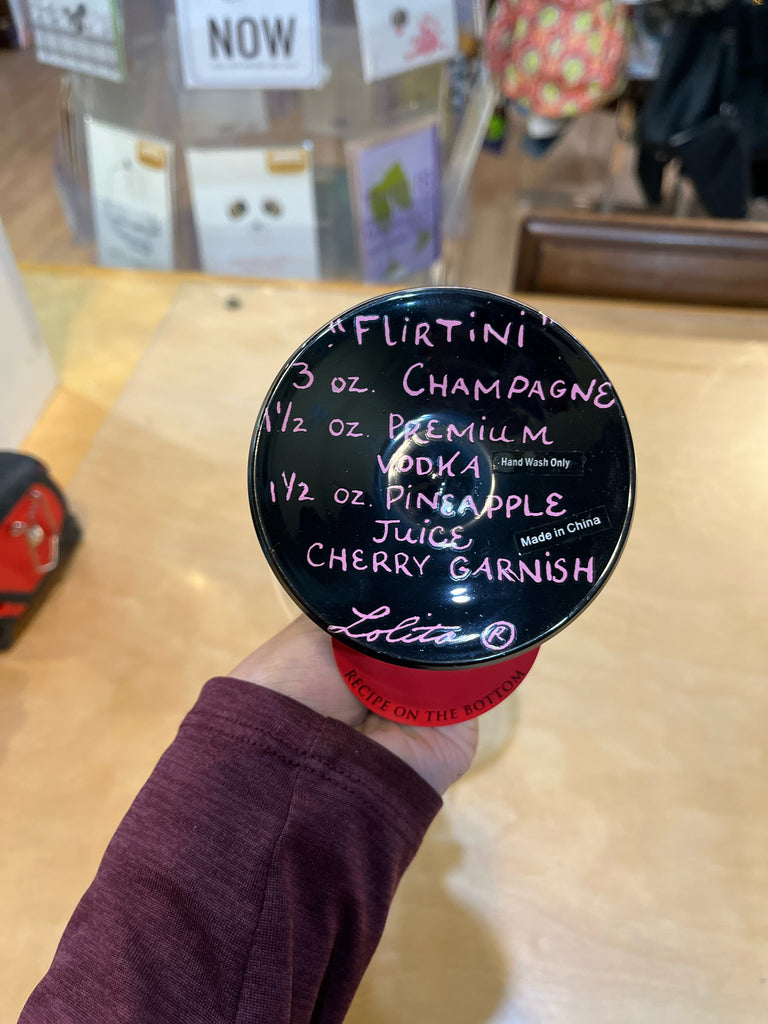 NOW
"FLIRTINI"
3 oz. CHAMPAGNE
1 1/2 oz. PREMIUM
VODKA
Hand Wash Only
1 1/2 oz. PINEAPPLE
JUICE
Made in China
CHERRY GARNISH
Lolita ®
RECIPE ON THE BOTTOM